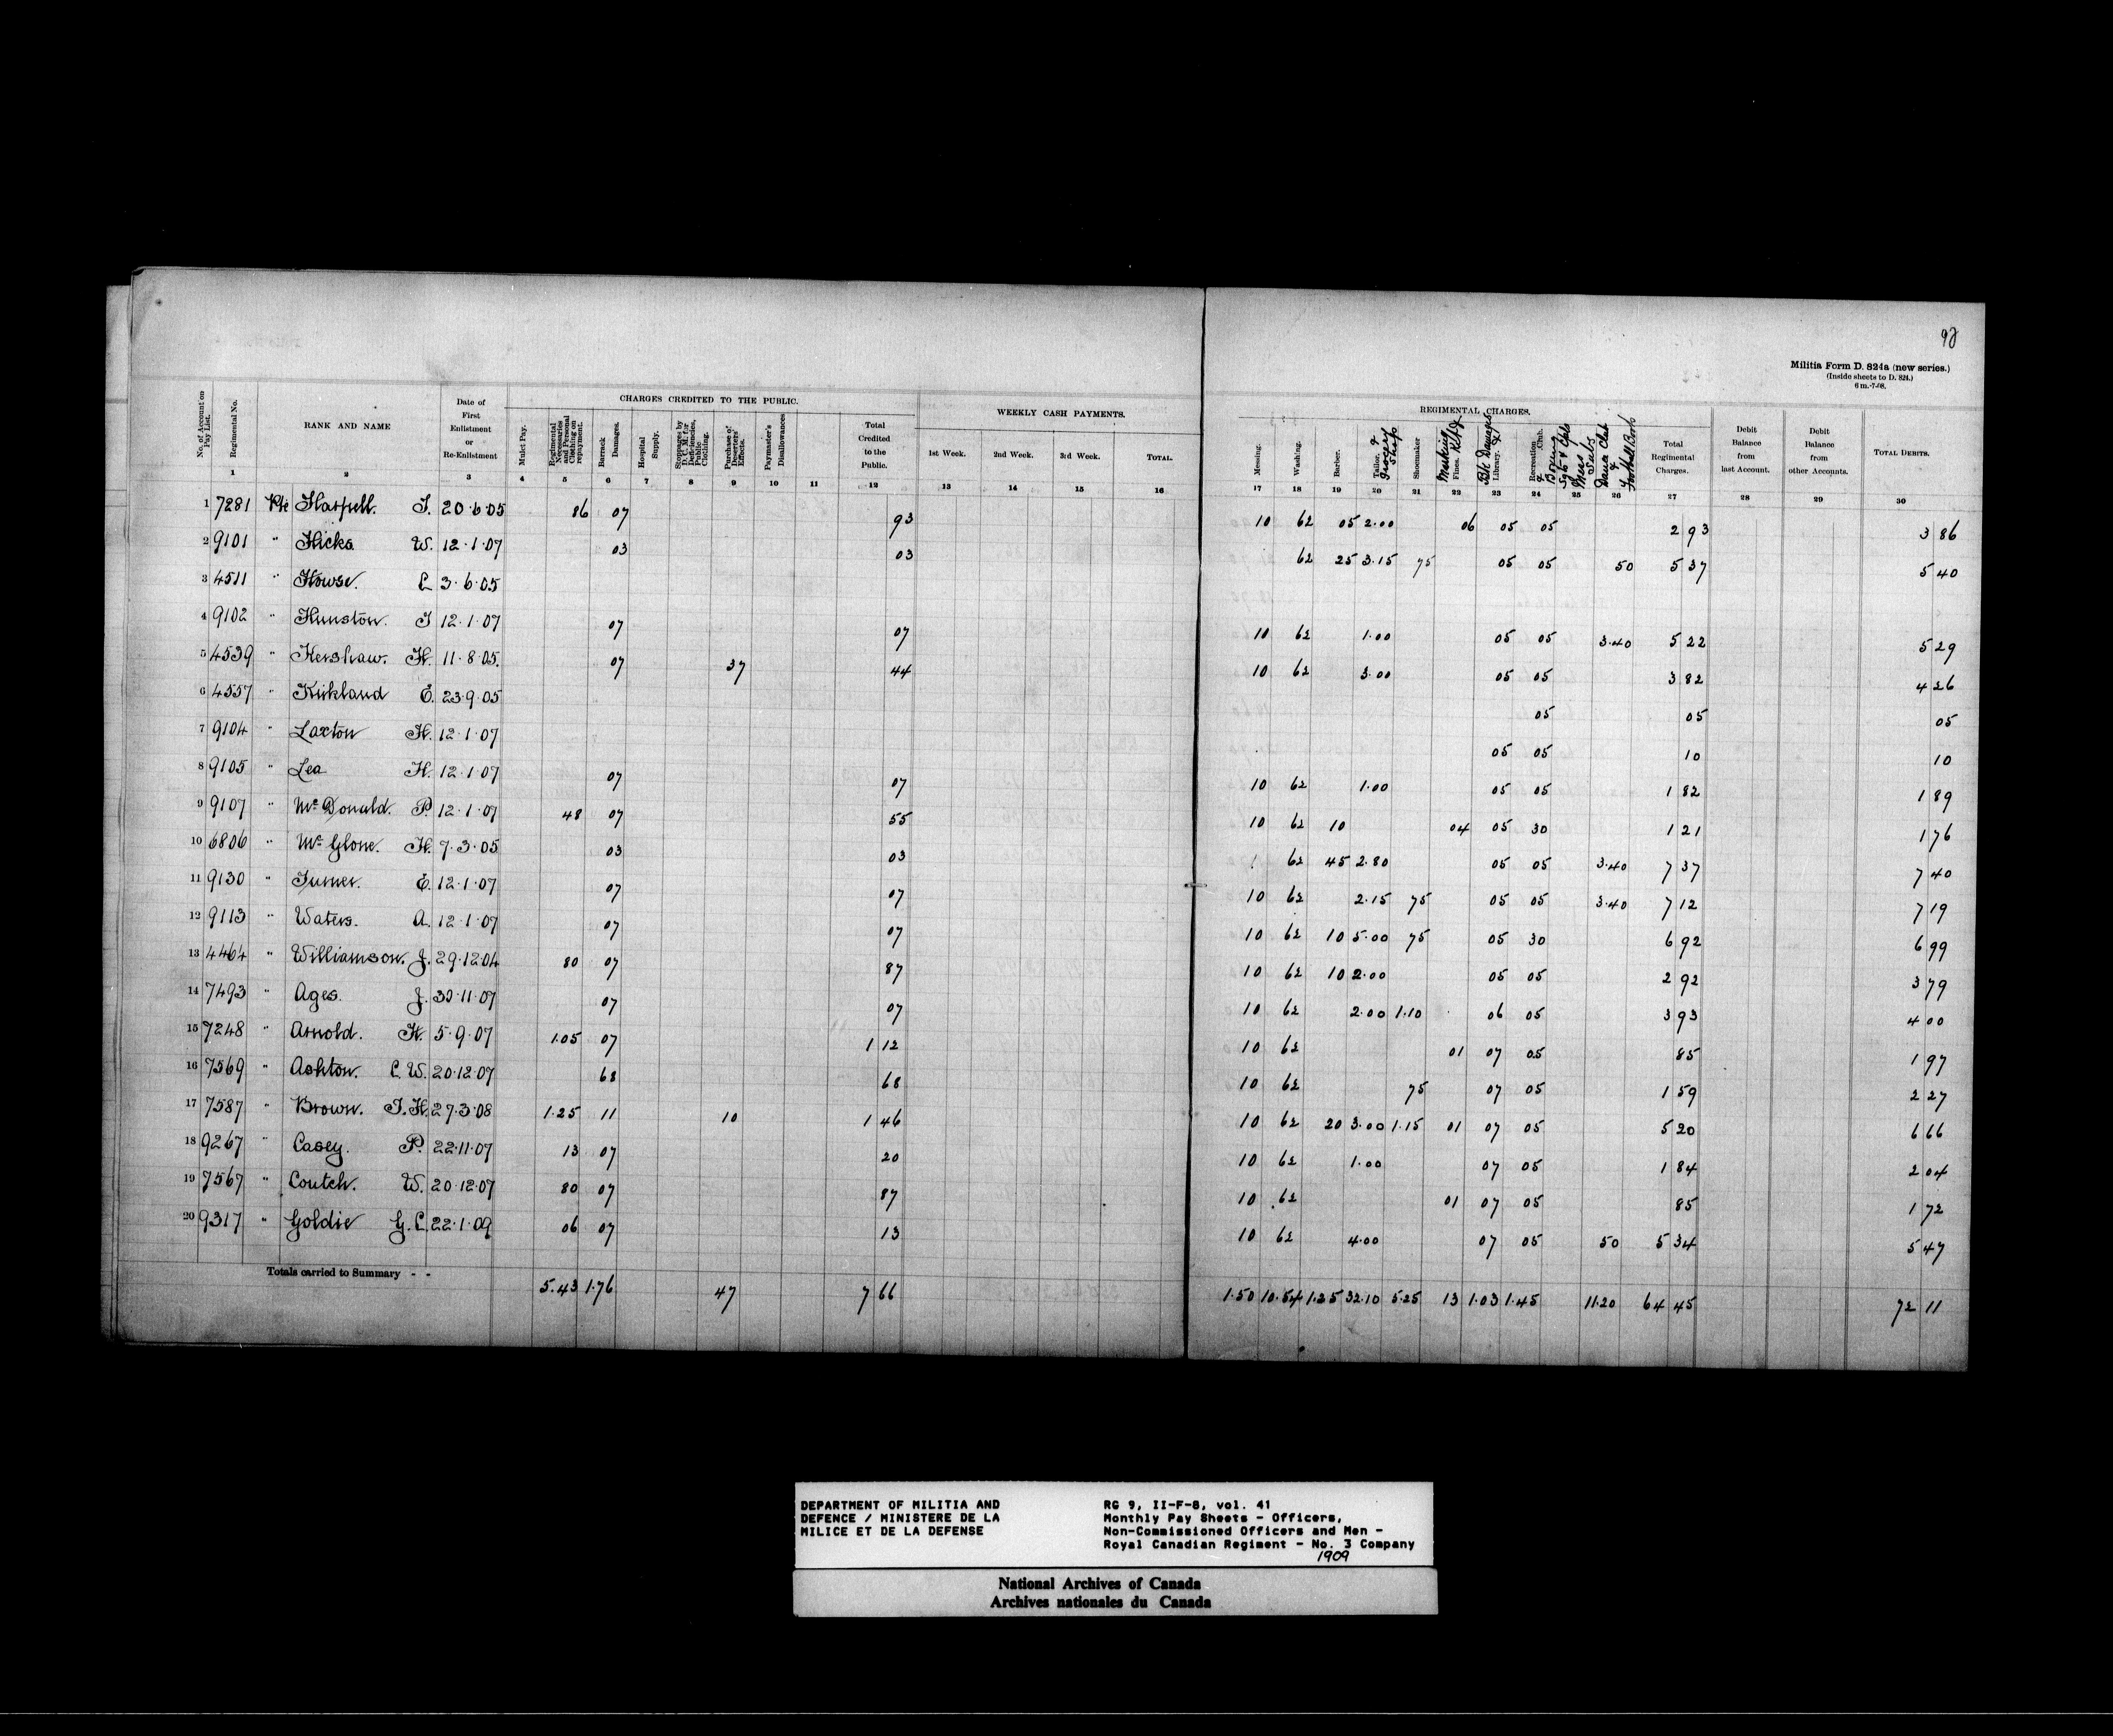 98
Militia Form D. 824a (new series.)
(Inside sheets to D. 824.)
6 m.-7-08.
No. of Account on Pay List. Regimental No. RANK AND NAME Date of First Enlistment or Re-Enlistment CHARGES CREDITED TO THE PUBLIC. WEEKLY CASH PAYMENTS. REGIMENTAL CHARGES. Debit Balance from last Account. Debit Balance from other Accounts. TOTAL DEBITS.
Mulct Pay. Regimental Necessaries and Personal Clothing on repayment. Barrack Damages. Hospital Supply. Stoppages by D.C.M. for Deficiencies, Public Clothing. Purchase of Deserters' Effects. Paymaster's Disallowances Total Credited to the Public. 1st Week. 2nd Week. 3rd Week. TOTAL. Messing. Washing. Barber. Tailor. & Grocery Shop Shoemaker Marking Kit & Fines. Bk Damages & Library. Recreation Club. & Boxing Sgts & Cpls Mess Subs Dance Club & Football Boots Total Regimental Charges.
1 2 3 4 5 6 7 8 9 10 11 12 13 14 15 16 17 18 19 20 21 22 23 24 25 26 27 28 29 30
1 7281 Pte Harpell. T. 20·6·05 86 07 93 10 62 05 2.00 06 05 05 2 93 3 86
2 9101 " Hicks W. 12·1·07 03 03 62 25 3.15 75 05 05 50 5 37 5 40
3 4511 " Howse. C 3·6·05
4 9102 " Hunston. T 12·1·07 07 07 10 62 1.00 05 05 3.40 5 22 5 29
5 4539 " Kershaw. H. 11·8·05. 07 37 44 10 62 3.00 05 05 3 82 4 26
6 4557 " Kirkland E. 23·9·05 05 05 05
7 9104 " Laxton H. 12·1·07 05 05 10 10
8 9105 " Lea H. 12·1·07 07 07 10 62 1.00 05 05 1 82 1 89
9 9107 " McDonald. P. 12·1·07 48 07 55 10 62 10 04 05 30 1 21 1 76
10 6806 " McGlone. H. 7·3·05 03 03 62 45 2.80 05 05 3.40 7 37 7 40
11 9130 " Turner. E. 12·1·07 07 07 10 62 2.15 75 05 05 3.40 7 12 7 19
12 9113 " Waters. A. 12·1·07 07 07 10 62 10 5.00 75 05 30 6 92 6 99
13 4464 " Williamson. J. 29·12·04 80 07 87 10 62 10 2.00 05 05 2 92 3 79
14 7493 " Ages. J. 30·11·07 07 07 10 62 2.00 1.10 06 05 3 93 4 00
15 7248 " Arnold. H. 5·9·07 1.05 07 1 12 10 62 01 07 05 85 1 97
16 7569 " Ashton. C. W. 20·12·07 68 68 10 62 75 07 05 1 59 2 27
17 7587 " Brown. T. H. 27·3·08 1.25 11 10 1 46 10 62 20 3.00 1.15 01 07 05 5 20 6 66
18 9267 " Casey. P. 22·11·07 13 07 20 10 62 1.00 07 05 1 84 2 04
19 7567 " Coutch. W. 20·12·07 80 07 87 10 62 01 07 05 85 1 72
20 9317 " Goldie G. C. 22·1·09 06 07 13 10 62 4.00 07 05 50 5 34 5 47
Totals carried to Summary - - 5.43 1.76 47 7 66 1.50 10.54 1.25 32.10 5.25 13 1.03 1.45 11.20 64 45 72 11
DEPARTMENT OF MILITIA AND
DEFENCE / MINISTERE DE LA
MILICE ET DE LA DEFENSE
RG 9, II-F-8, vol. 41
Monthly Pay Sheets - Officers,
Non-Commissioned Officers and Men -
Royal Canadian Regiment - No. 3 Company
1909
National Archives of Canada
Archives nationales du Canada